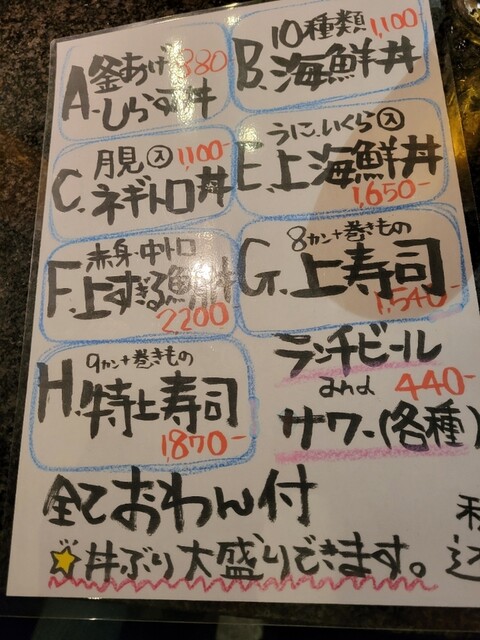 釜あげ 880
A.しらす丼
10種類 1,100
B.海鮮丼
月見入 1,100-
C.ネギトロ丼
うに.いくら入
E.上海鮮丼
1,650-
赤身.中トロ
F.上すぎる
2,200
8カン+巻きもの
G.上寿司
1,540-
9カン+巻きもの
H.特上寿司
1,870-
ランチビール
and 440-
サワー(各種)
全ておわん付
丼ぶり大盛りできます。
込